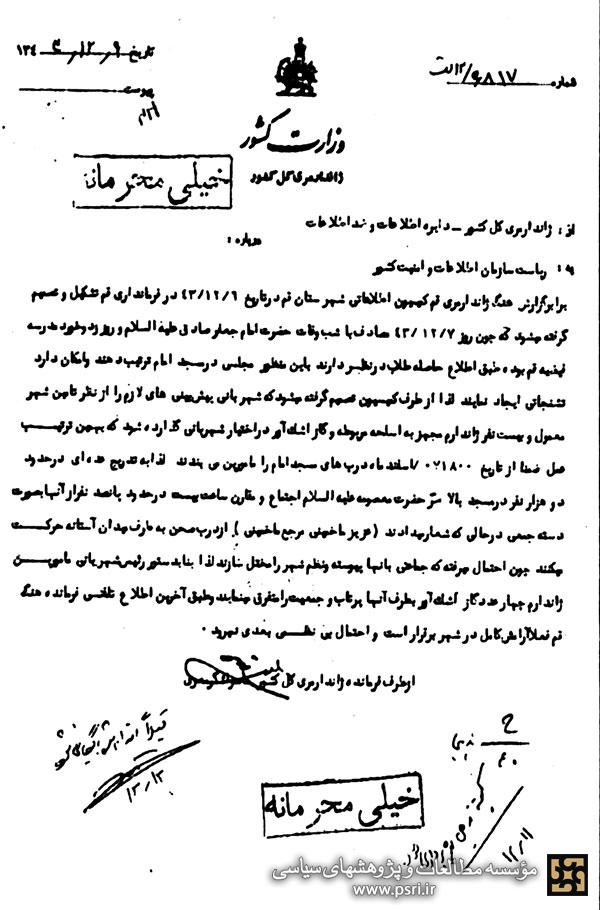 تاریخ ۹ / ۱۲ / ۱۳۴۳
شماره ۹۸۱۷/
پیوست
وزارت کشور
ژاندارمری کل کشور
خیلی محرمانه
از : ژاندارمری کل کشور - دایره اطلاعات و ضد اطلاعات
درباره :
به : ریاست سازمان اطلاعات و امنیت کشور
برابر گزارش هنگ ژاندارمری قم کمیسیون اطلاعاتی شهرستان قم در تاریخ ۴۳/۱۲/۶ در فرمانداری قم تشکیل و تصمیم
گرفته میشود که چون روز ۴۳/۱۲/۷ مصادف با شب وفات حضرت امام جعفر صادق علیه السلام و روز زد و خورد مدرسه
فیضیه قم بوده طبق اطلاع حاصله طلاب در نظر دارند باین منظور مجلسی در مسجد امام ترتیب دهند و امکان دارد
تشنجاتی ایجاد نمایند لذا از طرف کمیسیون تصمیم گرفته میشود که شهربانی پیش بینی های لازم را از نظر تامین شهر
معمول و بیست نفر ژاندارم مجهز به اسلحه مربوطه و گاز اشک آور در اختیار شهربانی گذارده شود که بهمین ترتیب
عمل ضمنا از تاریخ ۰۷۱۸۰۰ /اسفند ماه درب های مسجد امام را مامورین می بندند لذا به تدریج عده ای در حدود
دو هزار نفر در مسجد بالا سر حضرت معصومه علیه السلام اجتماع و مقارن ساعت بیست در حدود پانصد نفر از آنها بصورت
دسته جمعی در حالی که شعار میدادند (عزیز ما خمینی مرجع ما خمینی ) از درب صحن به طرف میدان آستانه حرکت
میکنند چون احتمال میرفته که جماعتی بآنها پیوسته و نظم شهر را مختل سازند لذا بنا بدستور رئیس شهربانی مامورین
ژاندارم چهار عدد گاز اشک آور بطرف آنها پرتاب و جمعیت را متفرق مینمایند و طبق آخرین اطلاع تلفنی فرمانده هنگ
قم فعلا آرامش کامل در شهر برقرار است و احتمال بی نظمی بعدی نمیرود .
از طرف فرمانده ژاندارمری کل کشور
۱۲/۱۳
خیلی محرمانه
۱۲/۱۱
مؤسسه مطالعات و پژوهشهای سیاسی
www.psri.ir